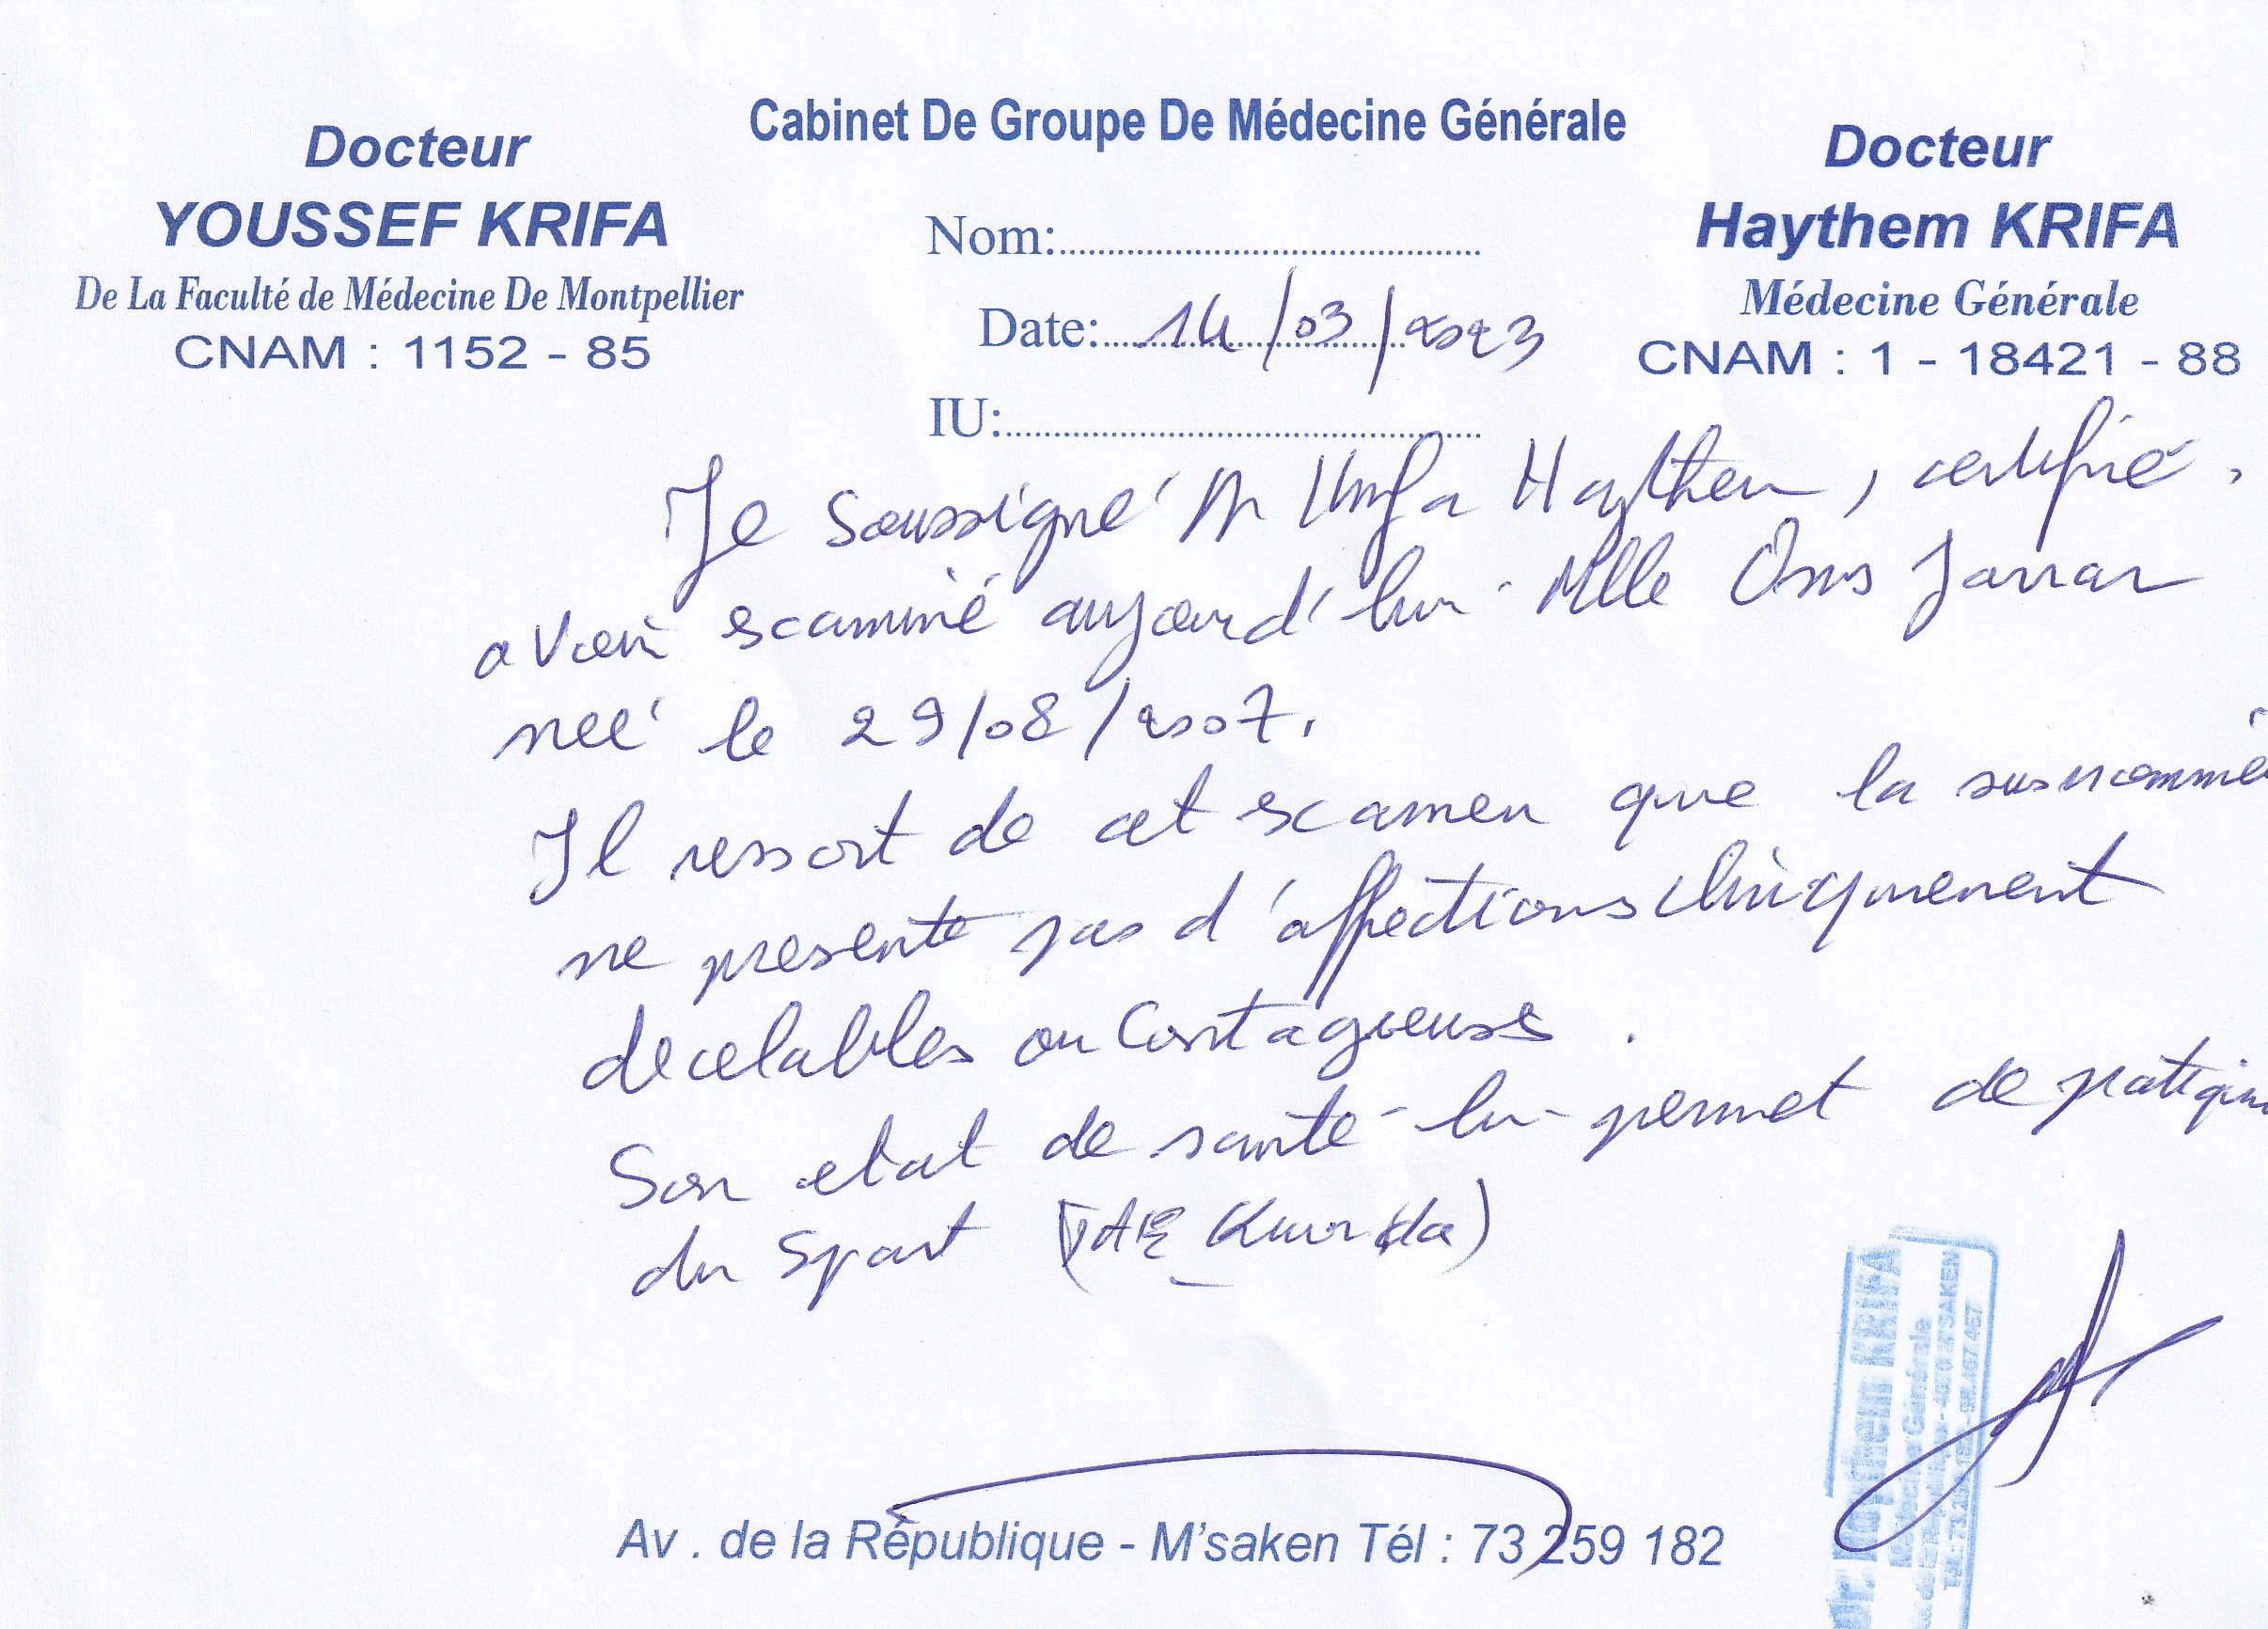 Cabinet De Groupe De Médecine Générale
Docteur
YOUSSEF KRIFA
De La Faculté de Médecine De Montpellier
CNAM : 1152 - 85
Docteur
Haythem KRIFA
Médecine Générale
CNAM : 1 - 18421 - 88
Nom:
Date: 14/03/2023
IU:
Je soussigné Dr Krifa Haythem, certifie
avoir examiné aujourd'hui Mlle Ons Jarrar
neé le 29/08/2007.
Il ressort de cet examen que la susnommé
ne presente pas d'affections cliniquement
decelables ou Contagieuses.
Son etat de santé lui permet de pratiqu
du sport (TAE Kwondo)
Dr. Haythem KRIFA
Médecine Générale
Av . de la République - M'saken Tél : 73 259 182